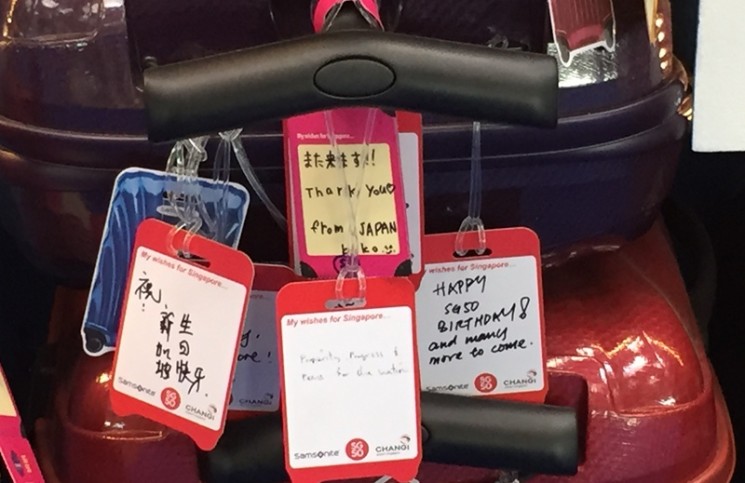 My wishes for Singapore...
また来ます!!
Thank You♡
from JAPAN
My wishes for Singapore...
祝!
新 生
加 日
坡 快乐.
Samsonite SG50 CHANGI
My wishes for Singapore...
Prosperity, Progress &
Peace for the nation
Samsonite SG50 CHANGI
My wishes for Singapore...
HAPPY
SG50
BIRTHDAY!
and many
more to come.
Samsonite SG50 CHANGI